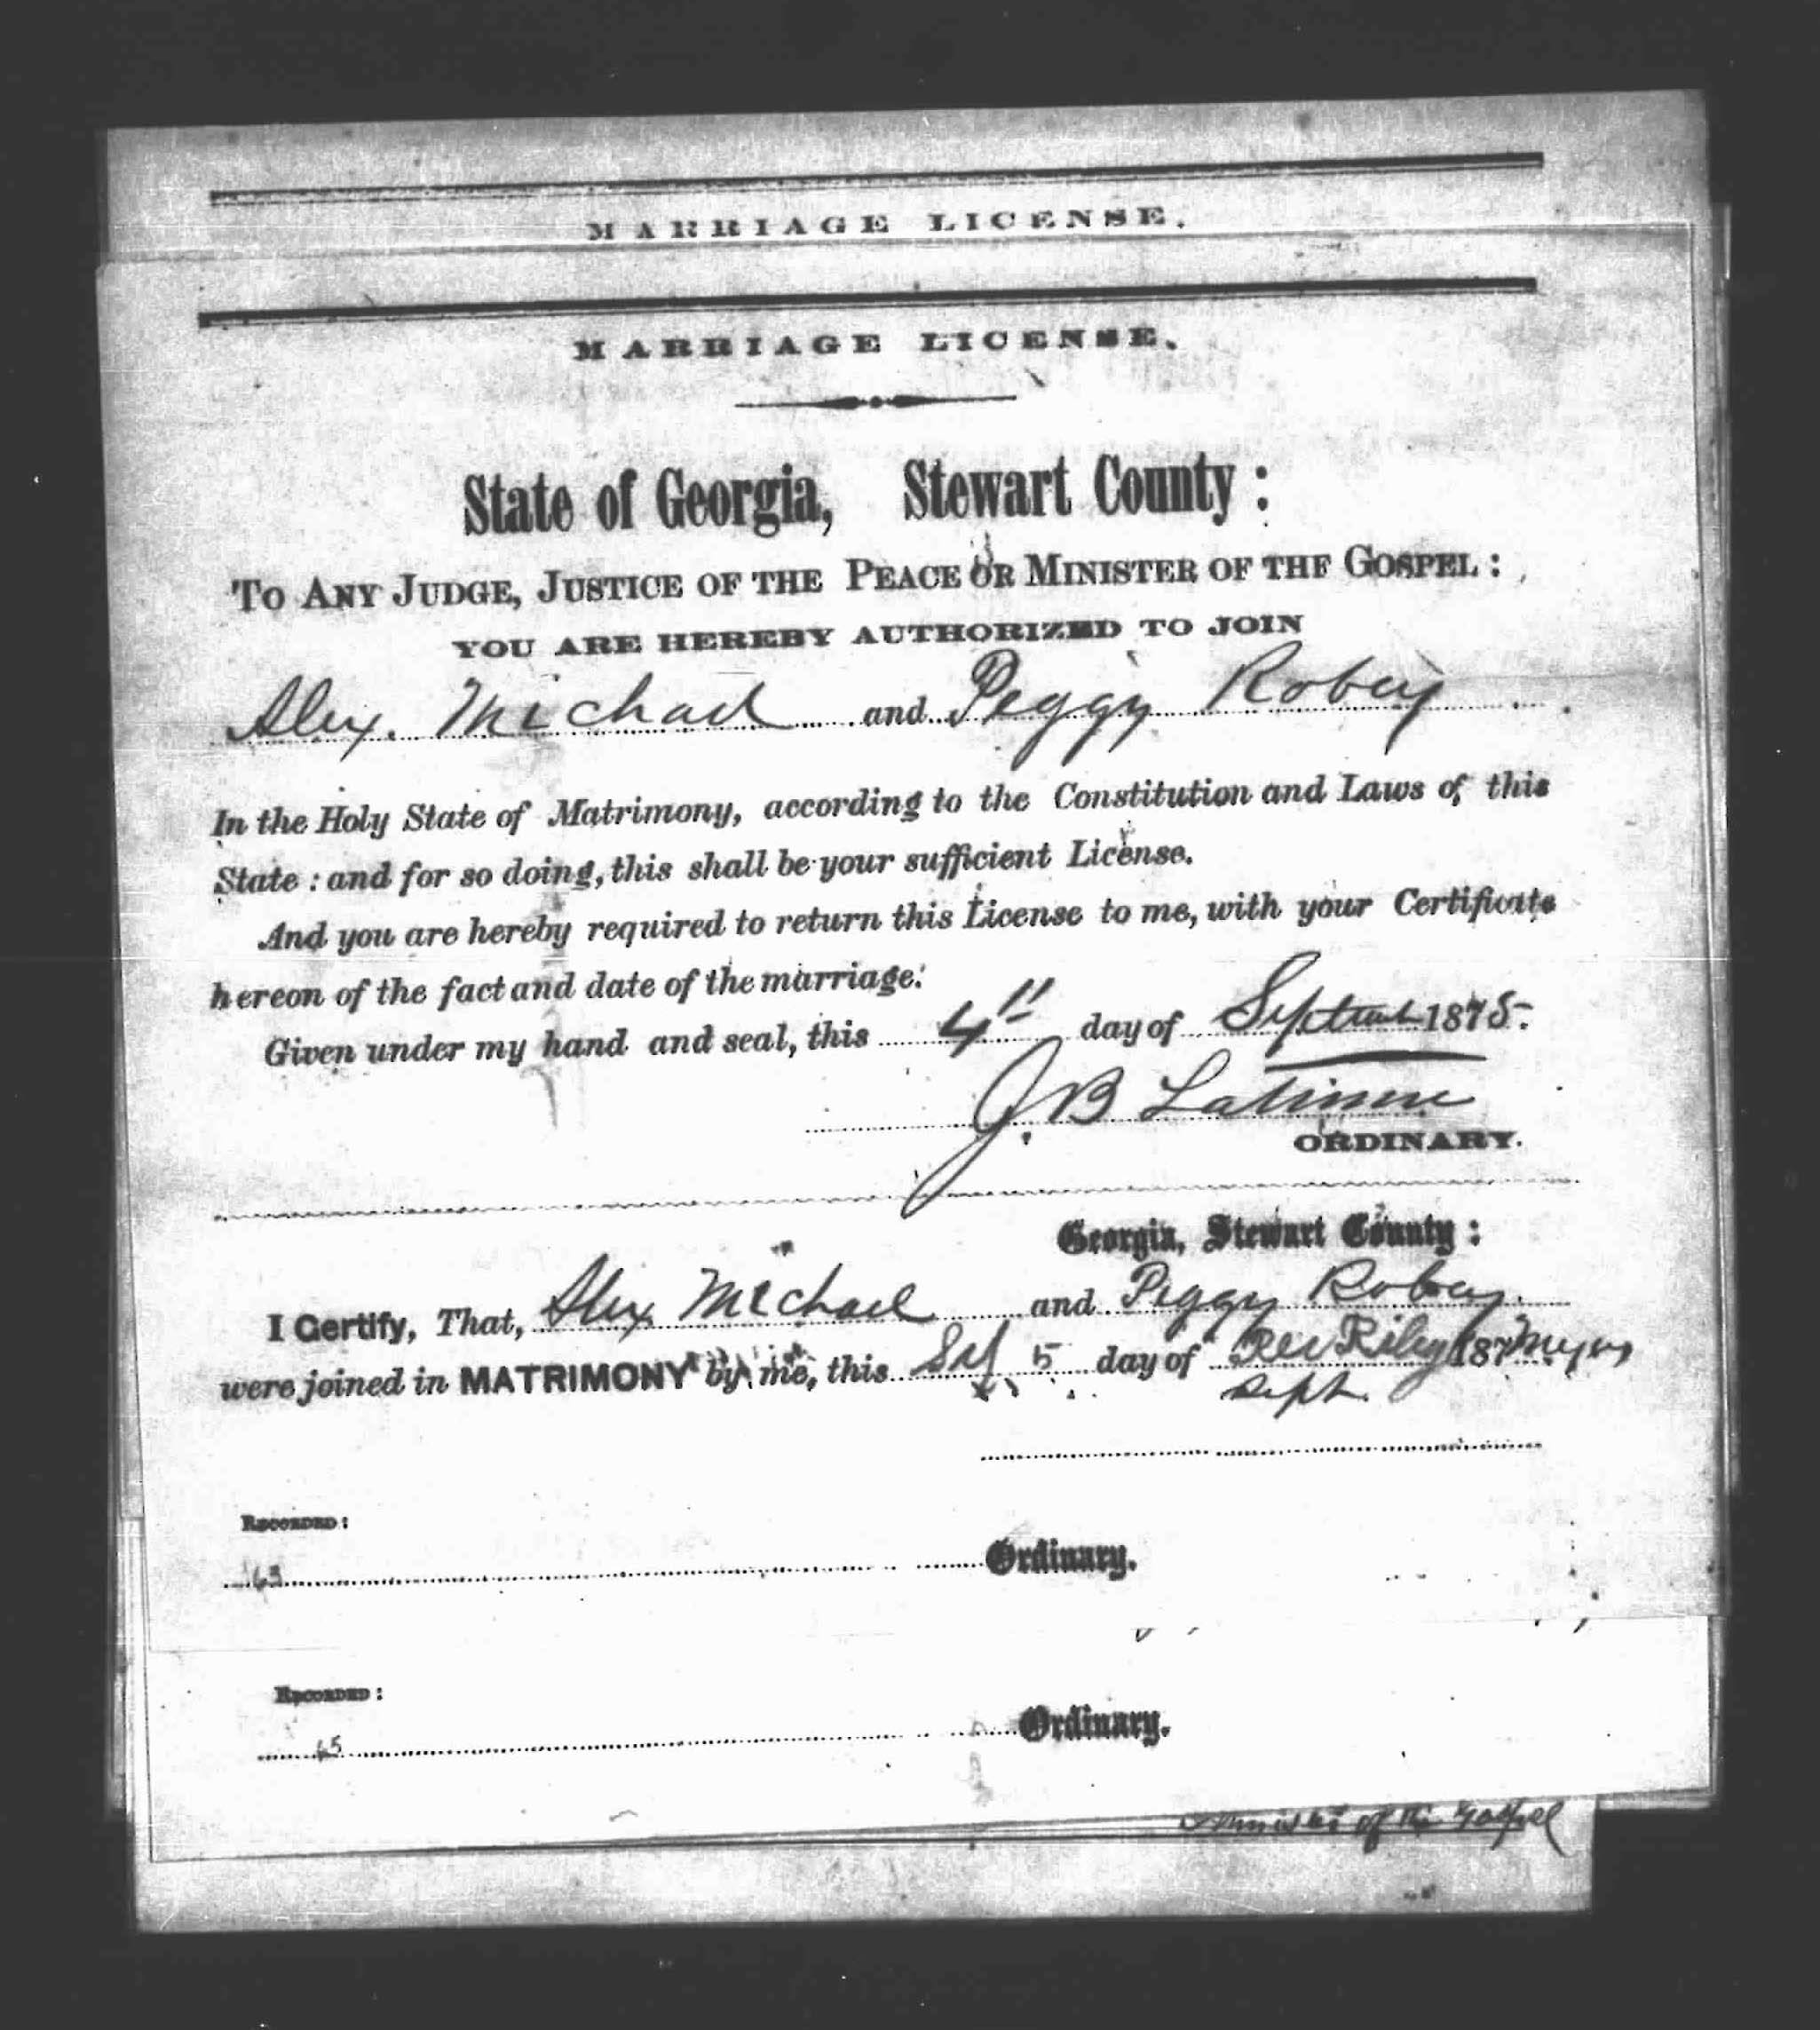 MARRIAGE LICENSE.
MARRIAGE LICENSE.
State of Georgia, Stewart County:
TO ANY JUDGE, JUSTICE OF THE PEACE OR MINISTER OF THE GOSPEL:
YOU ARE HEREBY AUTHORIZED TO JOIN
Alex. Michael and Peggy Robey
In the Holy State of Matrimony, according to the Constitution and Laws of this
State: and for so doing, this shall be your sufficient License.
And you are hereby required to return this License to me, with your Certificate
hereon of the fact and date of the marriage.
Given under my hand and seal, this 4" day of September 1875.
J. B Latimer
ORDINARY.
Georgia, Stewart County:
I Certify, That, Alex Michael and Peggy Robey.
were joined in MATRIMONY by me, this 5 day of Rev Riley 187 Myers
Sept.
RECORDED:
63 Ordinary.
RECORDED:
65 Ordinary.
Minister of the Gospel